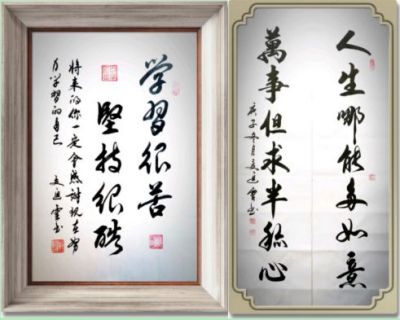 学習很苦
堅持很酷
将来的你一定会感谢现在努
力学習的自己
人生哪能多如意
萬事但求半称心
庚子冬月